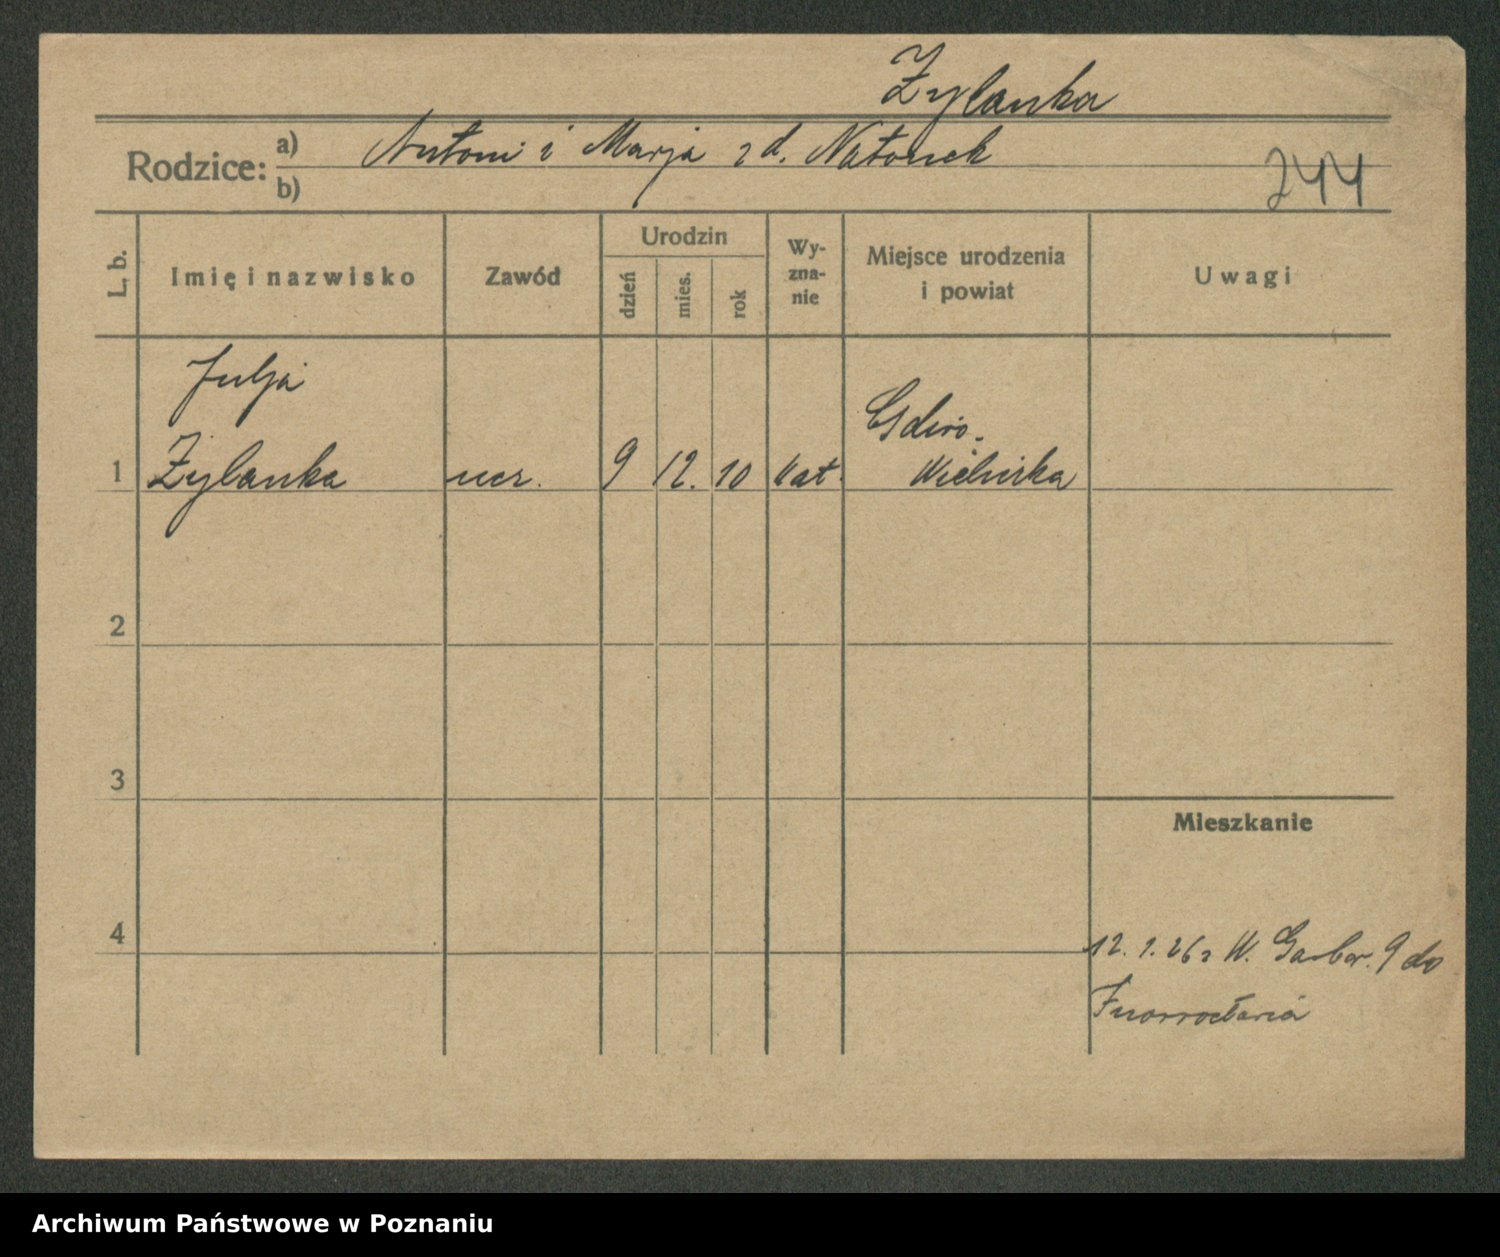 Żylanka
Rodzice: a) Antoni i Marja z d. Natonek
b)
244
L. b.
Imię i nazwisko
Zawód
Urodzin
dzień
mies.
rok
Wy-
zna-
nie
Miejsce urodzenia
i powiat
Uwagi
Julja
1 Żylanka ucz. 9 12. 10 kat.
Wieliczka
2
3
Mieszkanie
4
12. 1. 26 z W. Garbar. 9 do
Inowrocławia
Archiwum Państwowe w Poznaniu